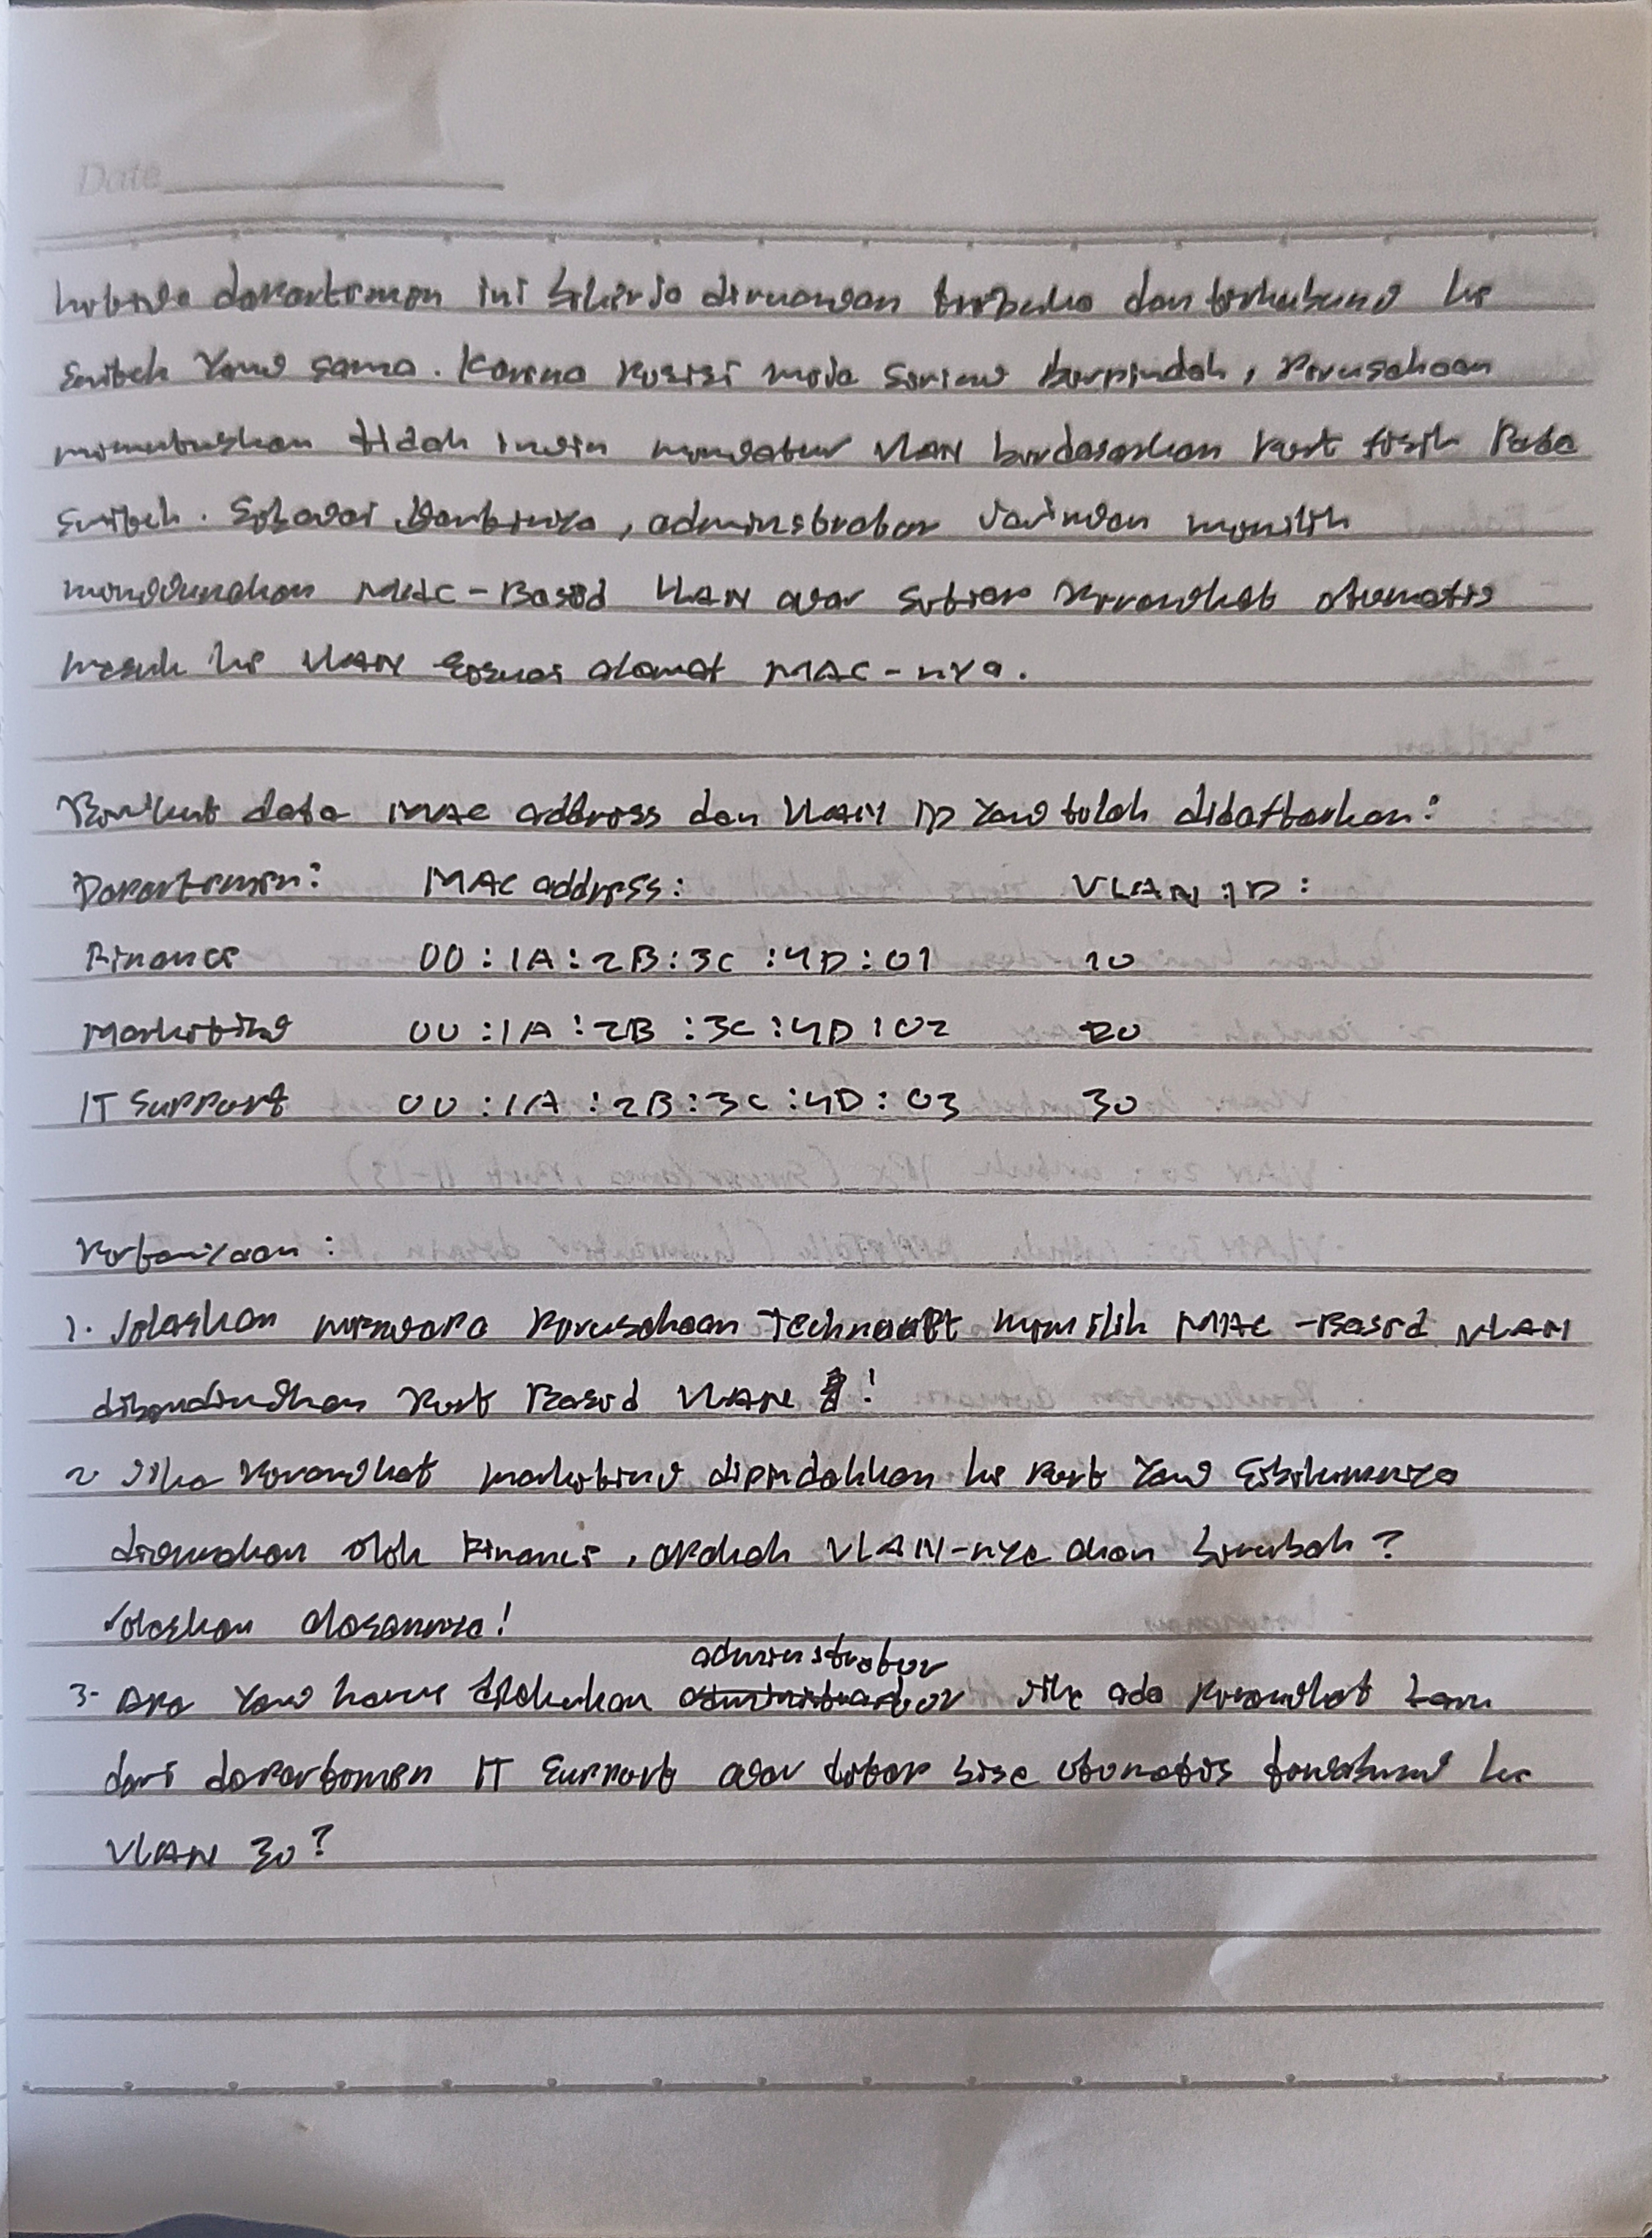 Date
ketiga departemen ini bekerja diruangan terbuka dan terhubung ke
switch yang sama. Karena posisi meja sering berpindah, perusahaan
memutuskan tidak ingin mengatur VLAN berdasarkan port fisik pada
switch. Sebagai gantinya, adminstrator jaringan memilih
menggunakan MAC-Based VLAN agar setiap perangkat otomatis
masuk ke VLAN sesuai alamat MAC-nya.
Berikut data MAC address dan VLAN ID yang telah didaftarkan:
Departemen: MAC address: VLAN ID:
Finance 00:1A:2B:3C:4D:01 10
Marketing 00:1A:2B:3C:4D:02 20
IT Support 00:1A:2B:3C:4D:03 30
Pertanyaan:
1. Jelaskan mengapa perusahaan memilih MAC-Based VLAN
dibandingkan Port Based VLAN!
2 Jika perangkat marketing dipindahkan ke port yang sebelumnya
digunakan oleh Finance, apakah VLAN-nya akan berubah?
Jelaskan alasannya!
adminstrator
3- Apa yang harus dilakukan jika ada perangkat baru
dari departemen IT Support agar tetap bisa otomatis ke
VLAN 30?